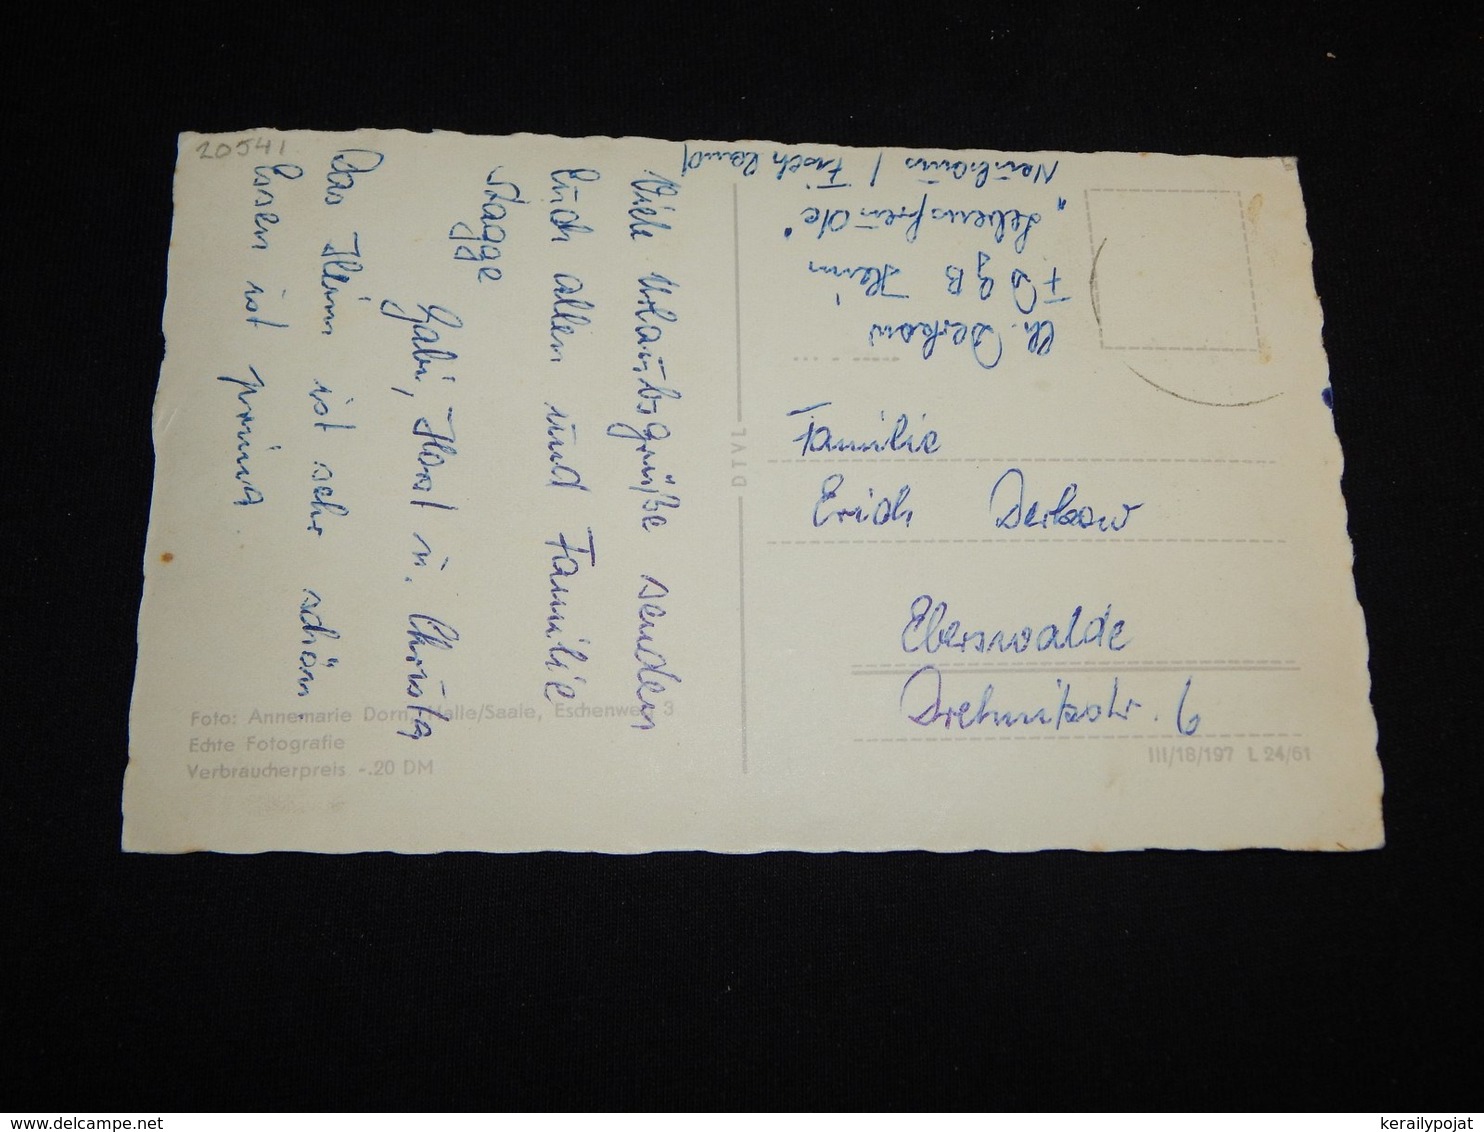 20541
Viele Urlaubsgrüße senden
Euch allen und Familie
Stagge
Gabi, Horst u. Christa
Das Heim ist sehr schön.
Essen ist prima.
Ch. Derkow
FDGB Heim
"Lebensfreude"
Neuhaus / Fischland
Familie
Erich Derkow
Eberswalde
Drehnitzstr. 6
DTVL
Foto: Annemarie Dorn, Halle/Saale, Eschenweg 3
Echte Fotografie
Verbraucherpreis -.20 DM
III/18/197 L 24/61
kerailypojat
www.delcampe.net